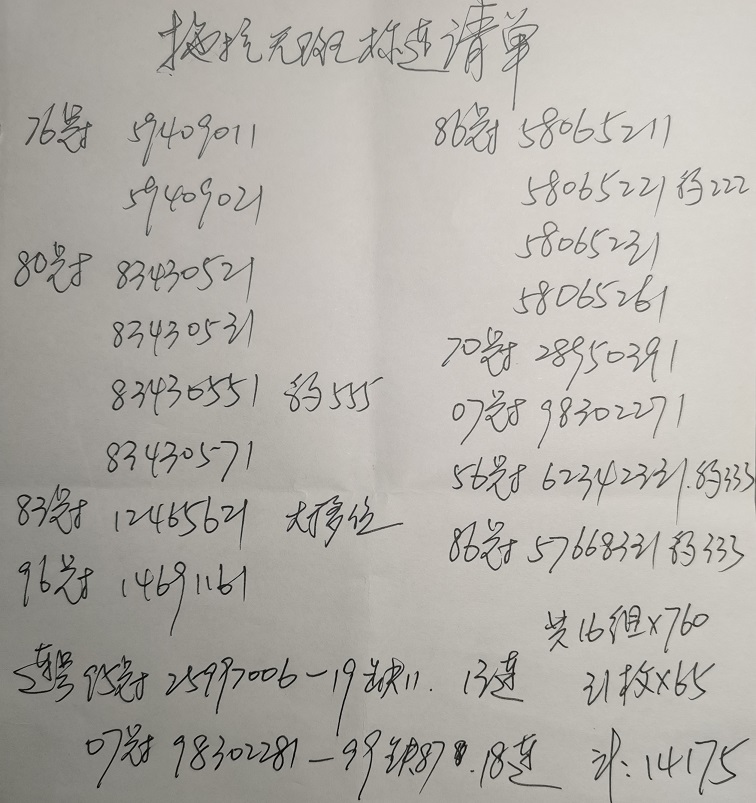 无斑标连请单
76冠 59409011
59409021
80冠 83430521
83430531
83430551 豹555
83430571
83冠 12465621 大移位
96冠 14691161
86冠 58065211
58065221 豹222
58065231
58065261
70冠 28950391
07冠 98302271
56冠 62342331.豹333
86冠 57668331 豹333
共16组×760
连号95冠 25997006-19缺11. 13连 31枚×65
07冠 98302281-99缺87.18连 计:14175